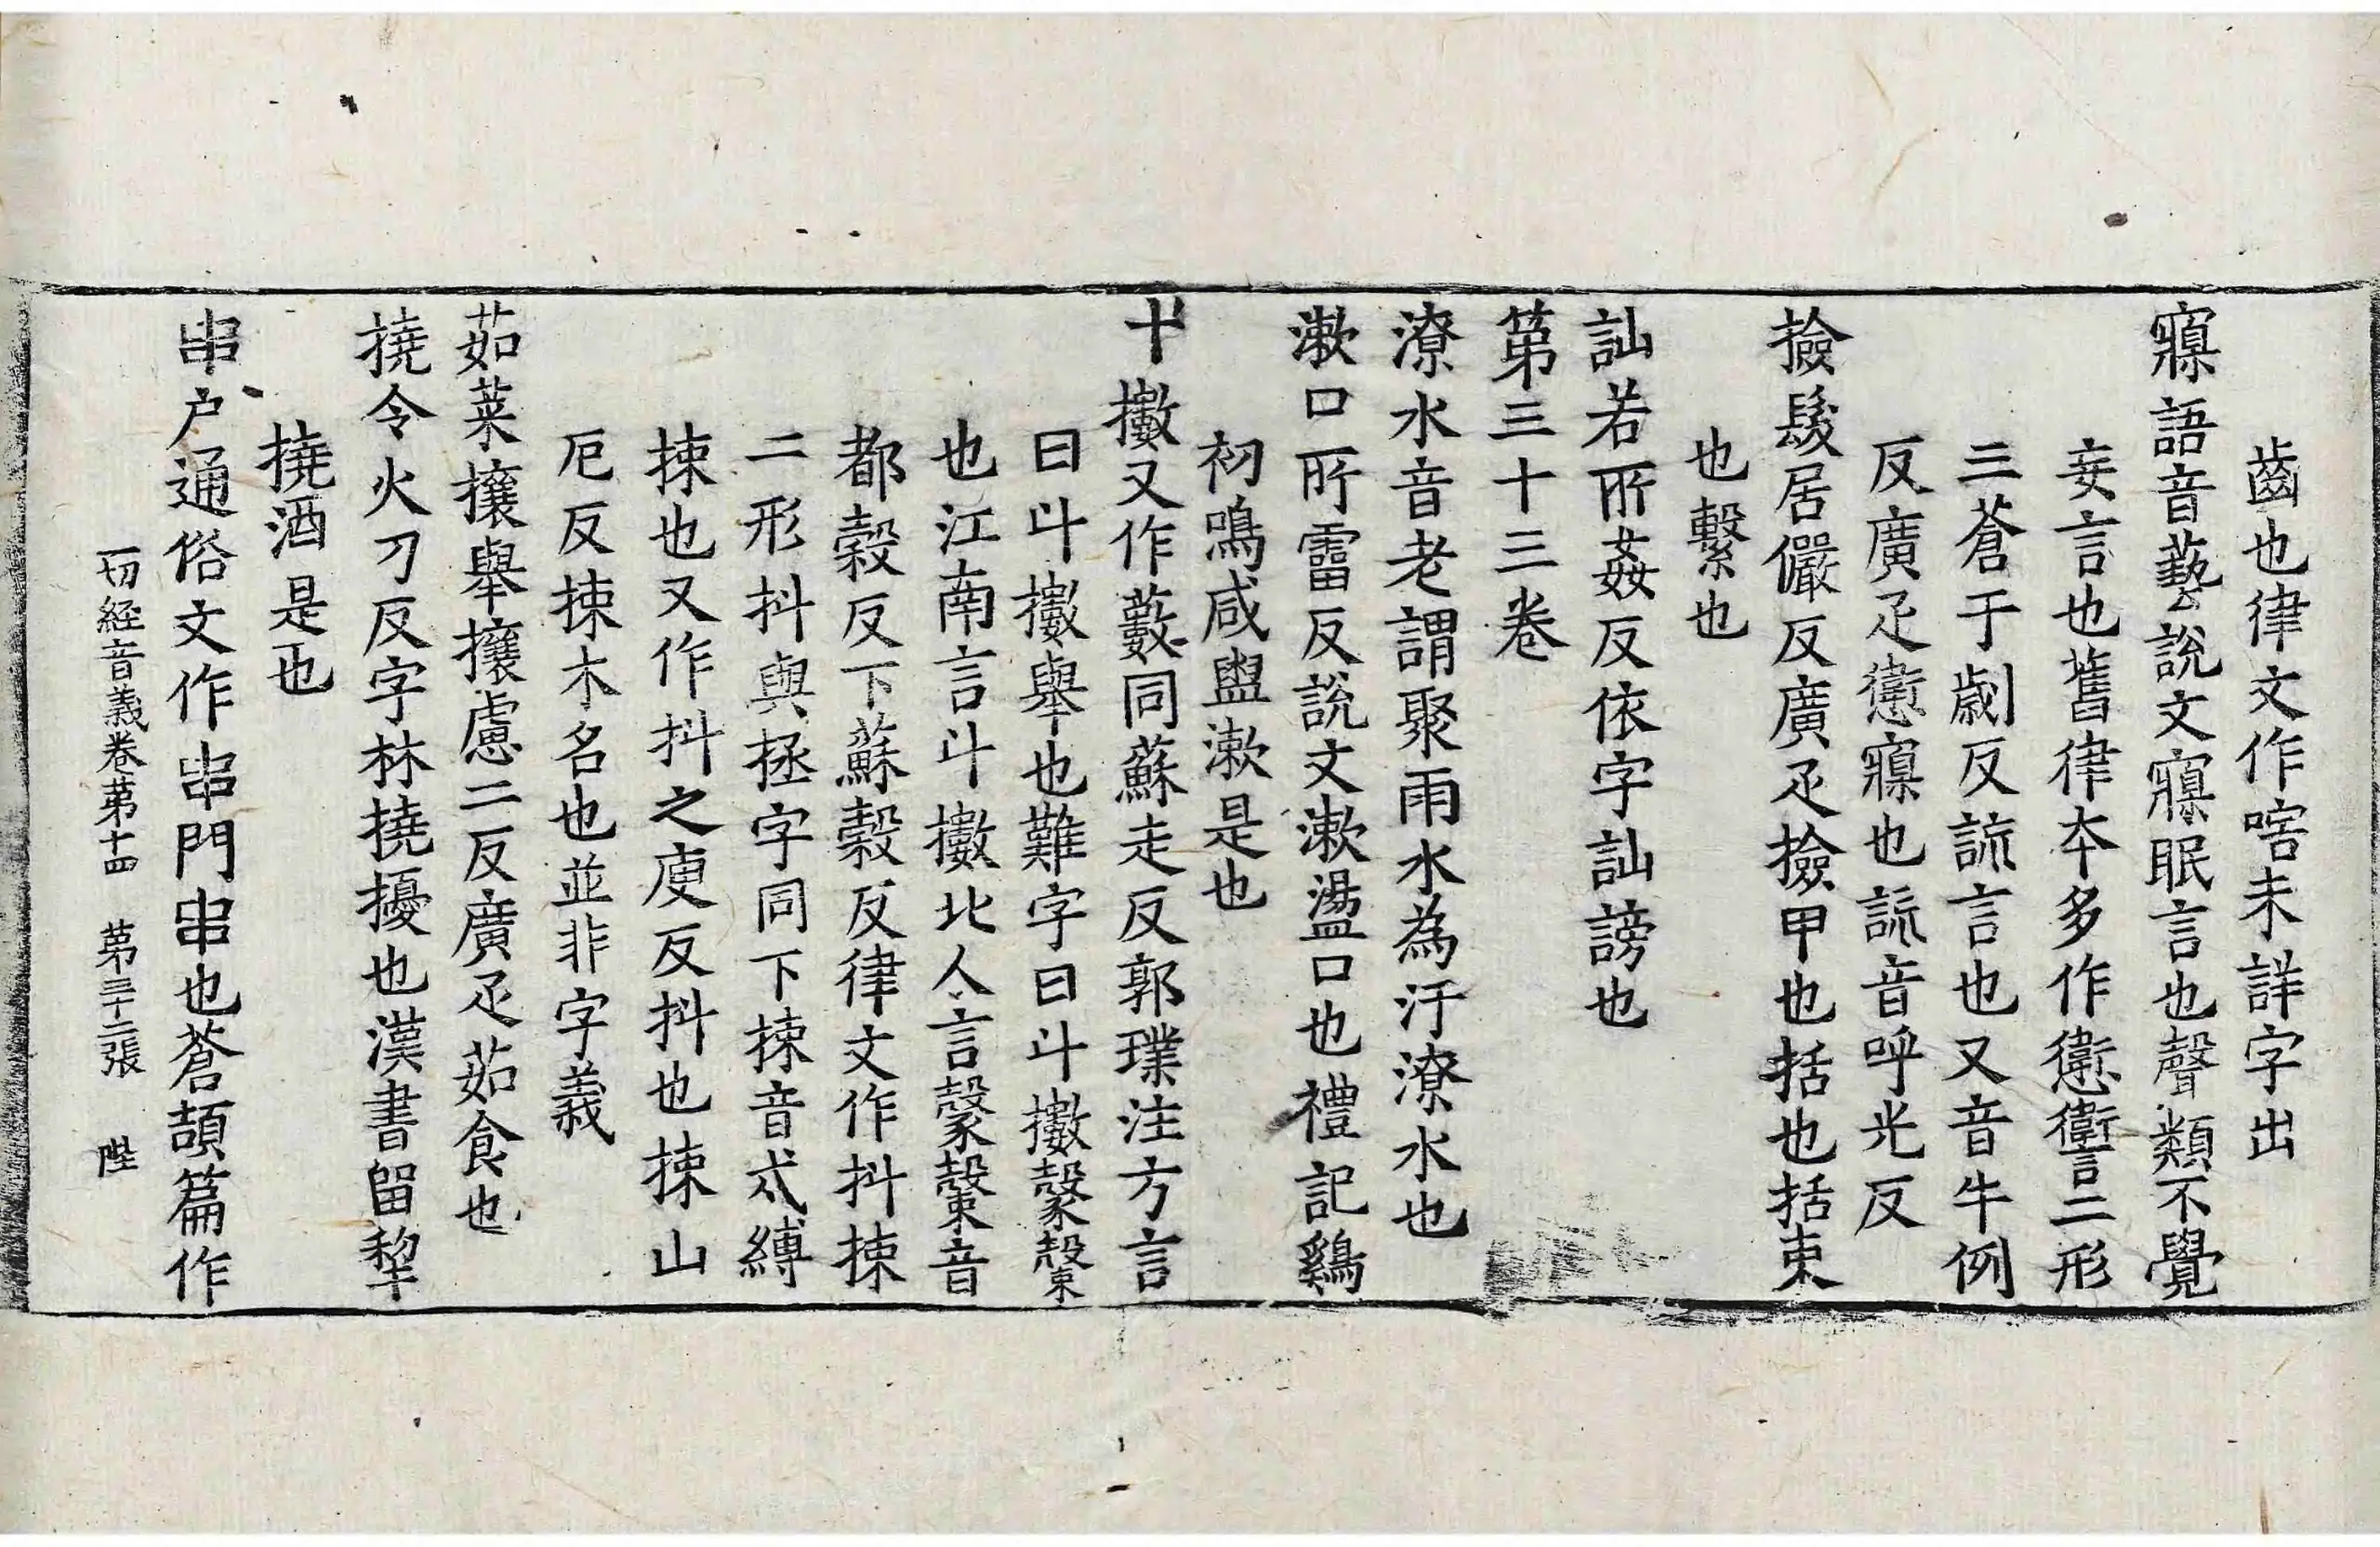 齒也律文作㗇未詳字出
寱語音藝說文寱眠言也聲類不覺
妄言也舊律本多作𢥏讆二形
三蒼于劌反謊言也又音牛例
反廣疋𢥏寱也謊音呼光反
撿髮居儼反廣疋撿甲也括也括束
也繫也
訕若所姦反依字訕謗也
第三十三卷
潦水音老謂聚雨水為汙潦水也
漱口所霤反說文漱盪口也禮記鷄
初鳴咸盥漱是也
斗擻又作藪同蘇走反郭璞注方言
曰斗擻舉也難字曰斗擻𣫍𣫎
也江南言斗擻北人言𣫍𣫎音
都穀反下蘇穀反律文作抖捒
二形抖與拯字同下捒音戍縛
捒也又作抖之庾反抖也捒山
厄反捒木名也並非字義
茹菜攘舉攘慮二反廣疋茹食也
撓令火刀反字林撓擾也漢書留犂
撓酒是也
串户通俗文作串門串也蒼頡篇作
一切經音義卷第十四 第三十二張 陛